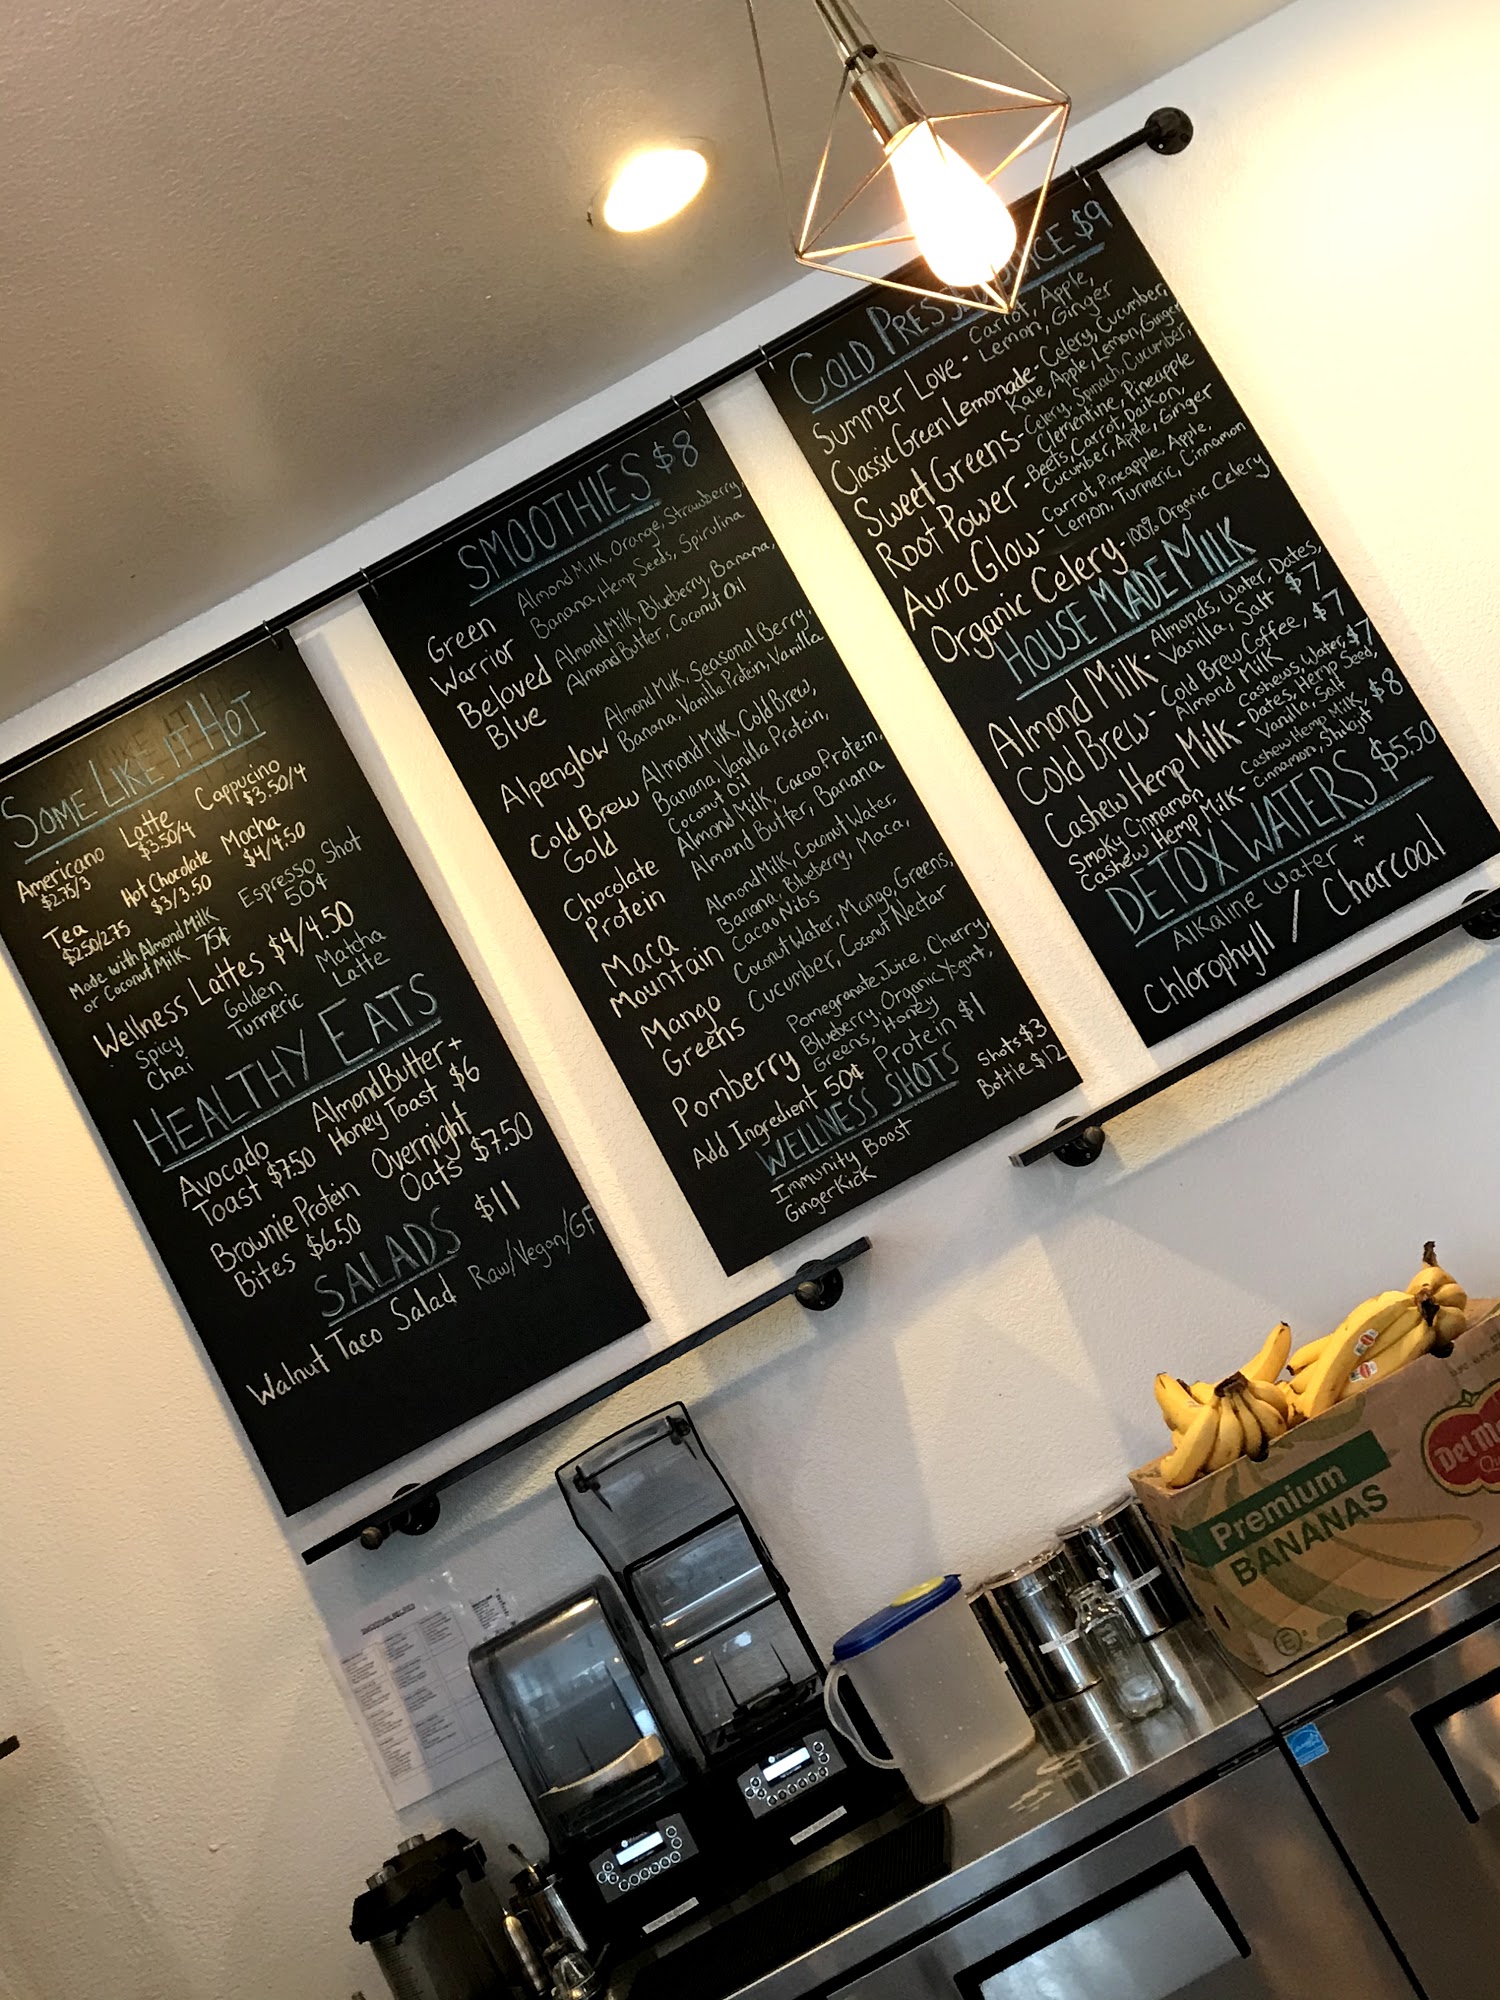 SOME LIKE IT HOT
Americano
$2.75/3
Latte
$3.50/4
Cappucino
$3.50/4
Tea
$2.50/2.75
Hot Chocolate
$3/3.50
Mocha
$4/4.50
Made with Almond Milk
or Coconut Milk 75¢
Espresso Shot
50¢
Wellness Lattes $4/4.50
Spicy
Chai
Golden
Turmeric
Matcha
Latte
HEALTHY EATS
Avocado
Toast $7.50
Almond Butter +
Honey Toast $6
Brownie Protein
Bites $6.50
Overnight
Oats $7.50
SALADS $11
Walnut Taco Salad Raw/Vegan/GF
SMOOTHIES $8
Green
Warrior
Almond Milk, Orange, Strawberry,
Banana, Hemp Seeds, Spirulina
Beloved
Blue
Almond Milk, Blueberry, Banana,
Almond Butter, Coconut Oil
Alpenglow
Almond Milk, Seasonal Berry,
Banana, Vanilla Protein, Vanilla
Cold Brew
Gold
Almond Milk, Cold Brew,
Banana, Vanilla Protein,
Coconut Oil
Chocolate
Protein
Almond Milk, Cacao Protein,
Almond Butter, Banana
Maca
Mountain
Almond Milk, Coconut Water,
Banana, Blueberry, Maca,
Cacao Nibs
Mango
Greens
Coconut Water, Mango, Greens,
Cucumber, Coconut Nectar
Pomberry
Pomegranate Juice, Cherry,
Blueberry, Organic Yogurt,
Greens, Honey
Add Ingredient 50¢ Protein $1
WELLNESS SHOTS
Shots $3
Bottle $12
Immunity Boost
Ginger Kick
COLD PRESSED JUICE $9
Summer Love - Carrot, Apple,
Lemon, Ginger
Classic Green Lemonade - Celery, Cucumber,
Kale, Apple, Lemon, Ginger
Sweet Greens - Celery, Spinach, Cucumber,
Clementine, Pineapple
Root Power - Beets, Carrot, Daikon,
Cucumber, Apple, Ginger
Aura Glow - Carrot, Pineapple, Apple,
Lemon, Turmeric, Cinnamon
Organic Celery - 100% Organic Celery
HOUSE MADE MILK
Almond Milk - Almonds, Water, Dates,
Vanilla, Salt $7
Cold Brew - Cold Brew Coffee,
Almond Milk $7
Cashew Hemp Milk - Cashews, Water, $7
Dates, Hemp Seed,
Vanilla, Salt
Smoky Cinnamon
Cashew Hemp Milk - Cashew Hemp Milk, $8
Cinnamon, Shilajit
DETOX WATERS $5.50
Alkaline Water +
Chlorophyll / Charcoal
Premium
BANANAS
Del Mo
Qu